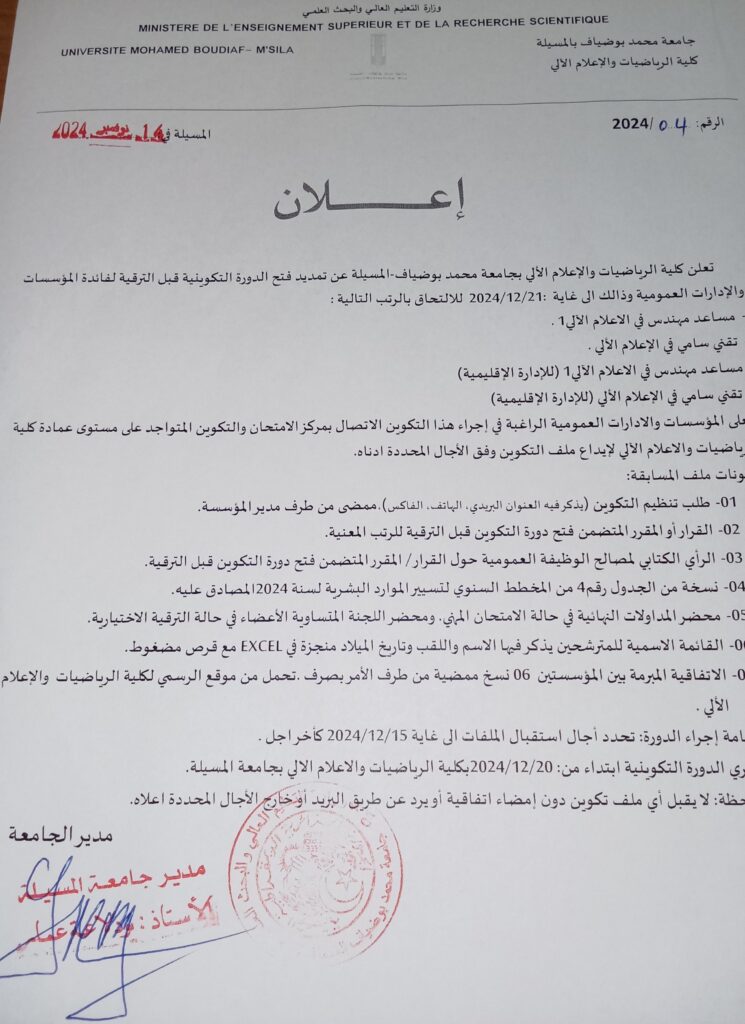 وزارة التعليم العالي والبحث العلمي
MINISTERE DE L'ENSEIGNEMENT SUPERIEUR ET DE LA RECHERCHE SCIENTIFIQUE
جامعة محمد بوضياف بالمسيلة
UNIVERSITE MOHAMED BOUDIAF– M'SILA
كلية الرياضيات والإعلام الألي
الرقم: 04/2024
المسيلة في 14 نوفمبر 2024
إعــــــــلان
تعلن كلية الرياضيات والإعلام الألي بجامعة محمد بوضياف-المسيلة عن تمديد فتح الدورة التكوينية قبل الترقية لفائدة المؤسسات
والإدارات العمومية وذالك الى غاية :2024/12/21 للالتحاق بالرتب التالية :
- مساعد مهندس في الاعلام الألي1 .
تقني سامي في الإعلام الألي .
مساعد مهندس في الاعلام الآلي1 (للإدارة الإقليمية)
تقني سامي في الإعلام الألي (للإدارة الإقليمية)
على المؤسسات والادارات العمومية الراغبة في إجراء هذا التكوين الاتصال بمركز الامتحان والتكوين المتواجد على مستوى عمادة كلية
رياضيات والاعلام الآلي لإيداع ملف التكوين وفق الأجال المحددة ادناه.
ونات ملف المسابقة:
01- طلب تنظيم التكوين (يذكر فيه العنوان البريدي، الهاتف، الفاكس).ممضى من طرف مدير المؤسسة.
02- القرار أو المقرر المتضمن فتح دورة التكوين قبل الترقية للرتب المعنية.
03- الرأي الكتابي لمصالح الوظيفة العمومية حول القرار/ المقرر المتضمن فتح دورة التكوين قبل الترقية.
04- نسخة من الجدول رقم4 من المخطط السنوي لتسيير الموارد البشرية لسنة 2024المصادق عليه.
05- محضر المداولات النهائية في حالة الامتحان المهني. ومحضر اللجنة المتساوية الأعضاء في حالة الترقية الاختيارية.
0- القائمة الاسمية للمترشحين يذكر فيها الاسم واللقب وتاريخ الميلاد منجزة في EXCEL مع قرص مضغوط.
0- الاتفاقية المبرمة بين المؤسستين 06 نسخ ممضية من طرف الأمر بصرف .تحمل من موقع الرسمي لكلية الرياضيات والإعلام
الألي .
امة إجراء الدورة: تحدد أجال استقبال الملفات الى غاية 2024/12/15 كأخر اجل .
ري الدورة التكوينية ابتداء من: 2024/12/20بكلية الرياضيات والاعلام الالي بجامعة المسيلة.
حظة: لا يقبل أي ملف تكوين دون إمضاء اتفاقية أو يرد عن طريق البريد أو خارج الأجال المحددة اعلاه.
مدير الجامعة
مدير جامعة المسيلة
الأستاذ :